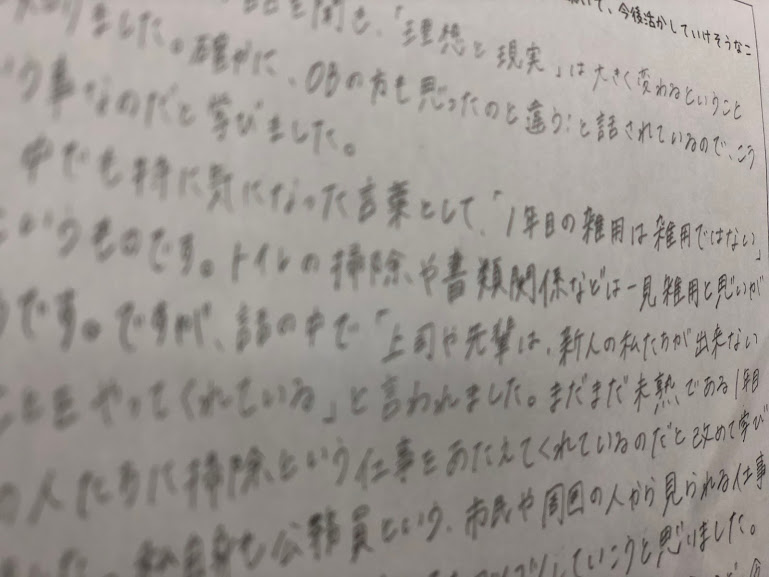 て、今後活かしていけそうなこ
りました。確かに、OBの方も思ったのと違う!と話されているので、こう
話を聞き、「理想と現実」は大きく変わるということ
う事なのだと学びました。
中でも特に気になった言葉として、「1年目の雑用は雑用ではない」
というものです。トイレの掃除や書類関係などは一見雑用と思いが
です。ですが、話の中で「上司や先輩は、新人の私たちが出来ない
ことをやってくれている」と言われました。まだまだ未熟である1年目
の人たちに掃除という仕事をあたえてくれているのだと改めて学び
ました。私自身も公務員という、市民や周囲の人から見られる仕事
していこうと思いました。